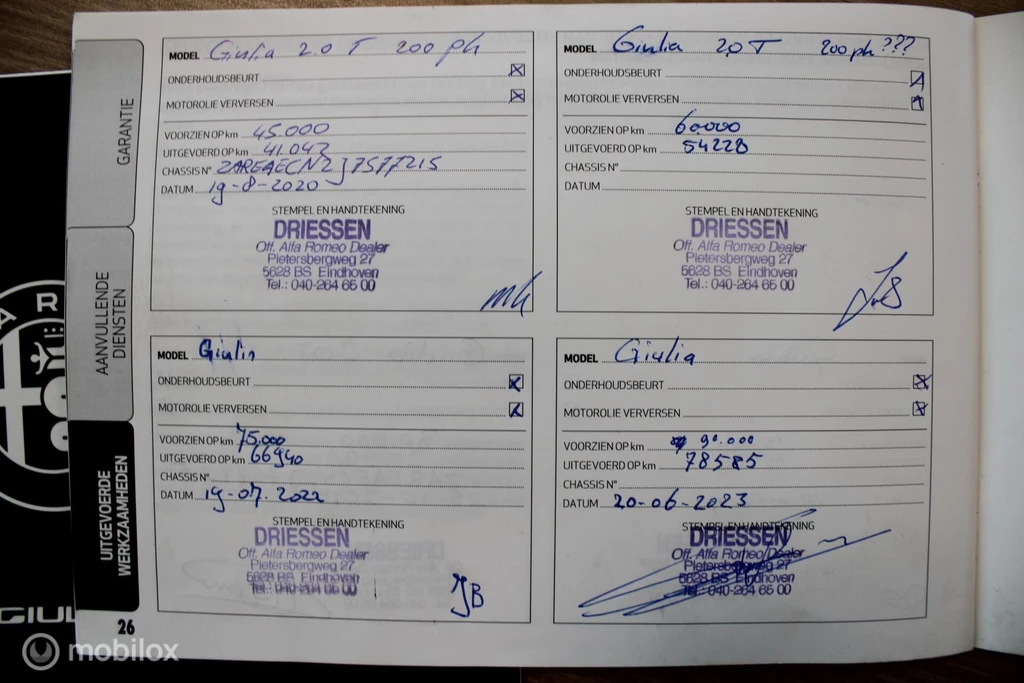 GARANTIE
AANVULLENDE
DIENSTEN
UITGEVOERDE
WERKZAAMHEDEN
26
MODEL Giulia 2.0 T 200 pk
ONDERHOUDSBEURT
MOTOROLIE VERVERSEN
VOORZIEN OP km 45.000
UITGEVOERD OP km 41.042
CHASSIS N° ZAREAECN2J7577215
DATUM 19-8-2020
STEMPEL EN HANDTEKENING
DRIESSEN
Off. Alfa Romeo Dealer
Pietersbergweg 27
5628 BS Eindhoven
Tel.: 040-264 65 00
MODEL Giulia 2.0 T 200 pk ???
ONDERHOUDSBEURT
MOTOROLIE VERVERSEN
VOORZIEN OP km 60.000
UITGEVOERD OP km 54228
CHASSIS N°
DATUM
STEMPEL EN HANDTEKENING
DRIESSEN
Off. Alfa Romeo Dealer
Pietersbergweg 27
5628 BS Eindhoven
Tel.: 040-264 65 00
MODEL Giulia
ONDERHOUDSBEURT
MOTOROLIE VERVERSEN
VOORZIEN OP km 75.000
UITGEVOERD OP km 66940
CHASSIS N°
DATUM 19-07-2022
STEMPEL EN HANDTEKENING
DRIESSEN
Off. Alfa Romeo Dealer
Pietersbergweg 27
5628 BS Eindhoven
Tel.: 040-264 65 00
JB
MODEL Giulia
ONDERHOUDSBEURT
MOTOROLIE VERVERSEN
VOORZIEN OP km 90.000
UITGEVOERD OP km 78585
CHASSIS N°
DATUM 20-06-2023
STEMPEL EN HANDTEKENING
DRIESSEN
Off. Alfa Romeo Dealer
Pietersbergweg 27
5628 BS Eindhoven
Tel.: 040-264 65 00
mobilox